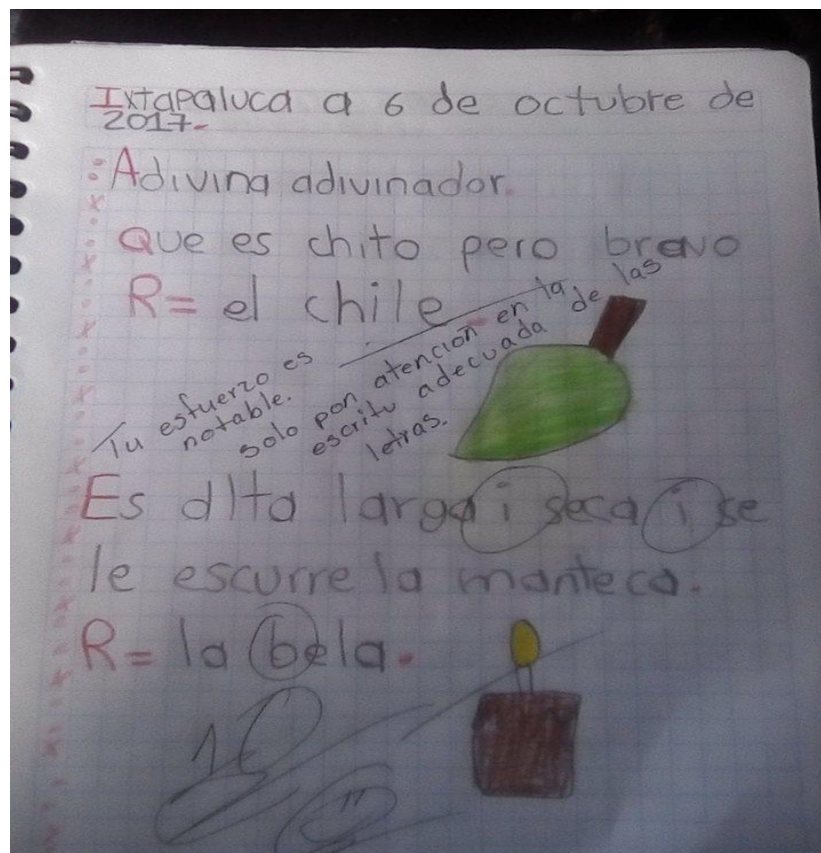 Ixtapaluca a 6 de octubre de
2017.
Adivina adivinador.
Que es chito pero bravo
R= el chile
Tu esfuerzo es
notable.
solo pon atencion en la
escritu adecuada de las
letras.
Es alta larga i seca i se
le escurre la manteca.
R= la bela.
10